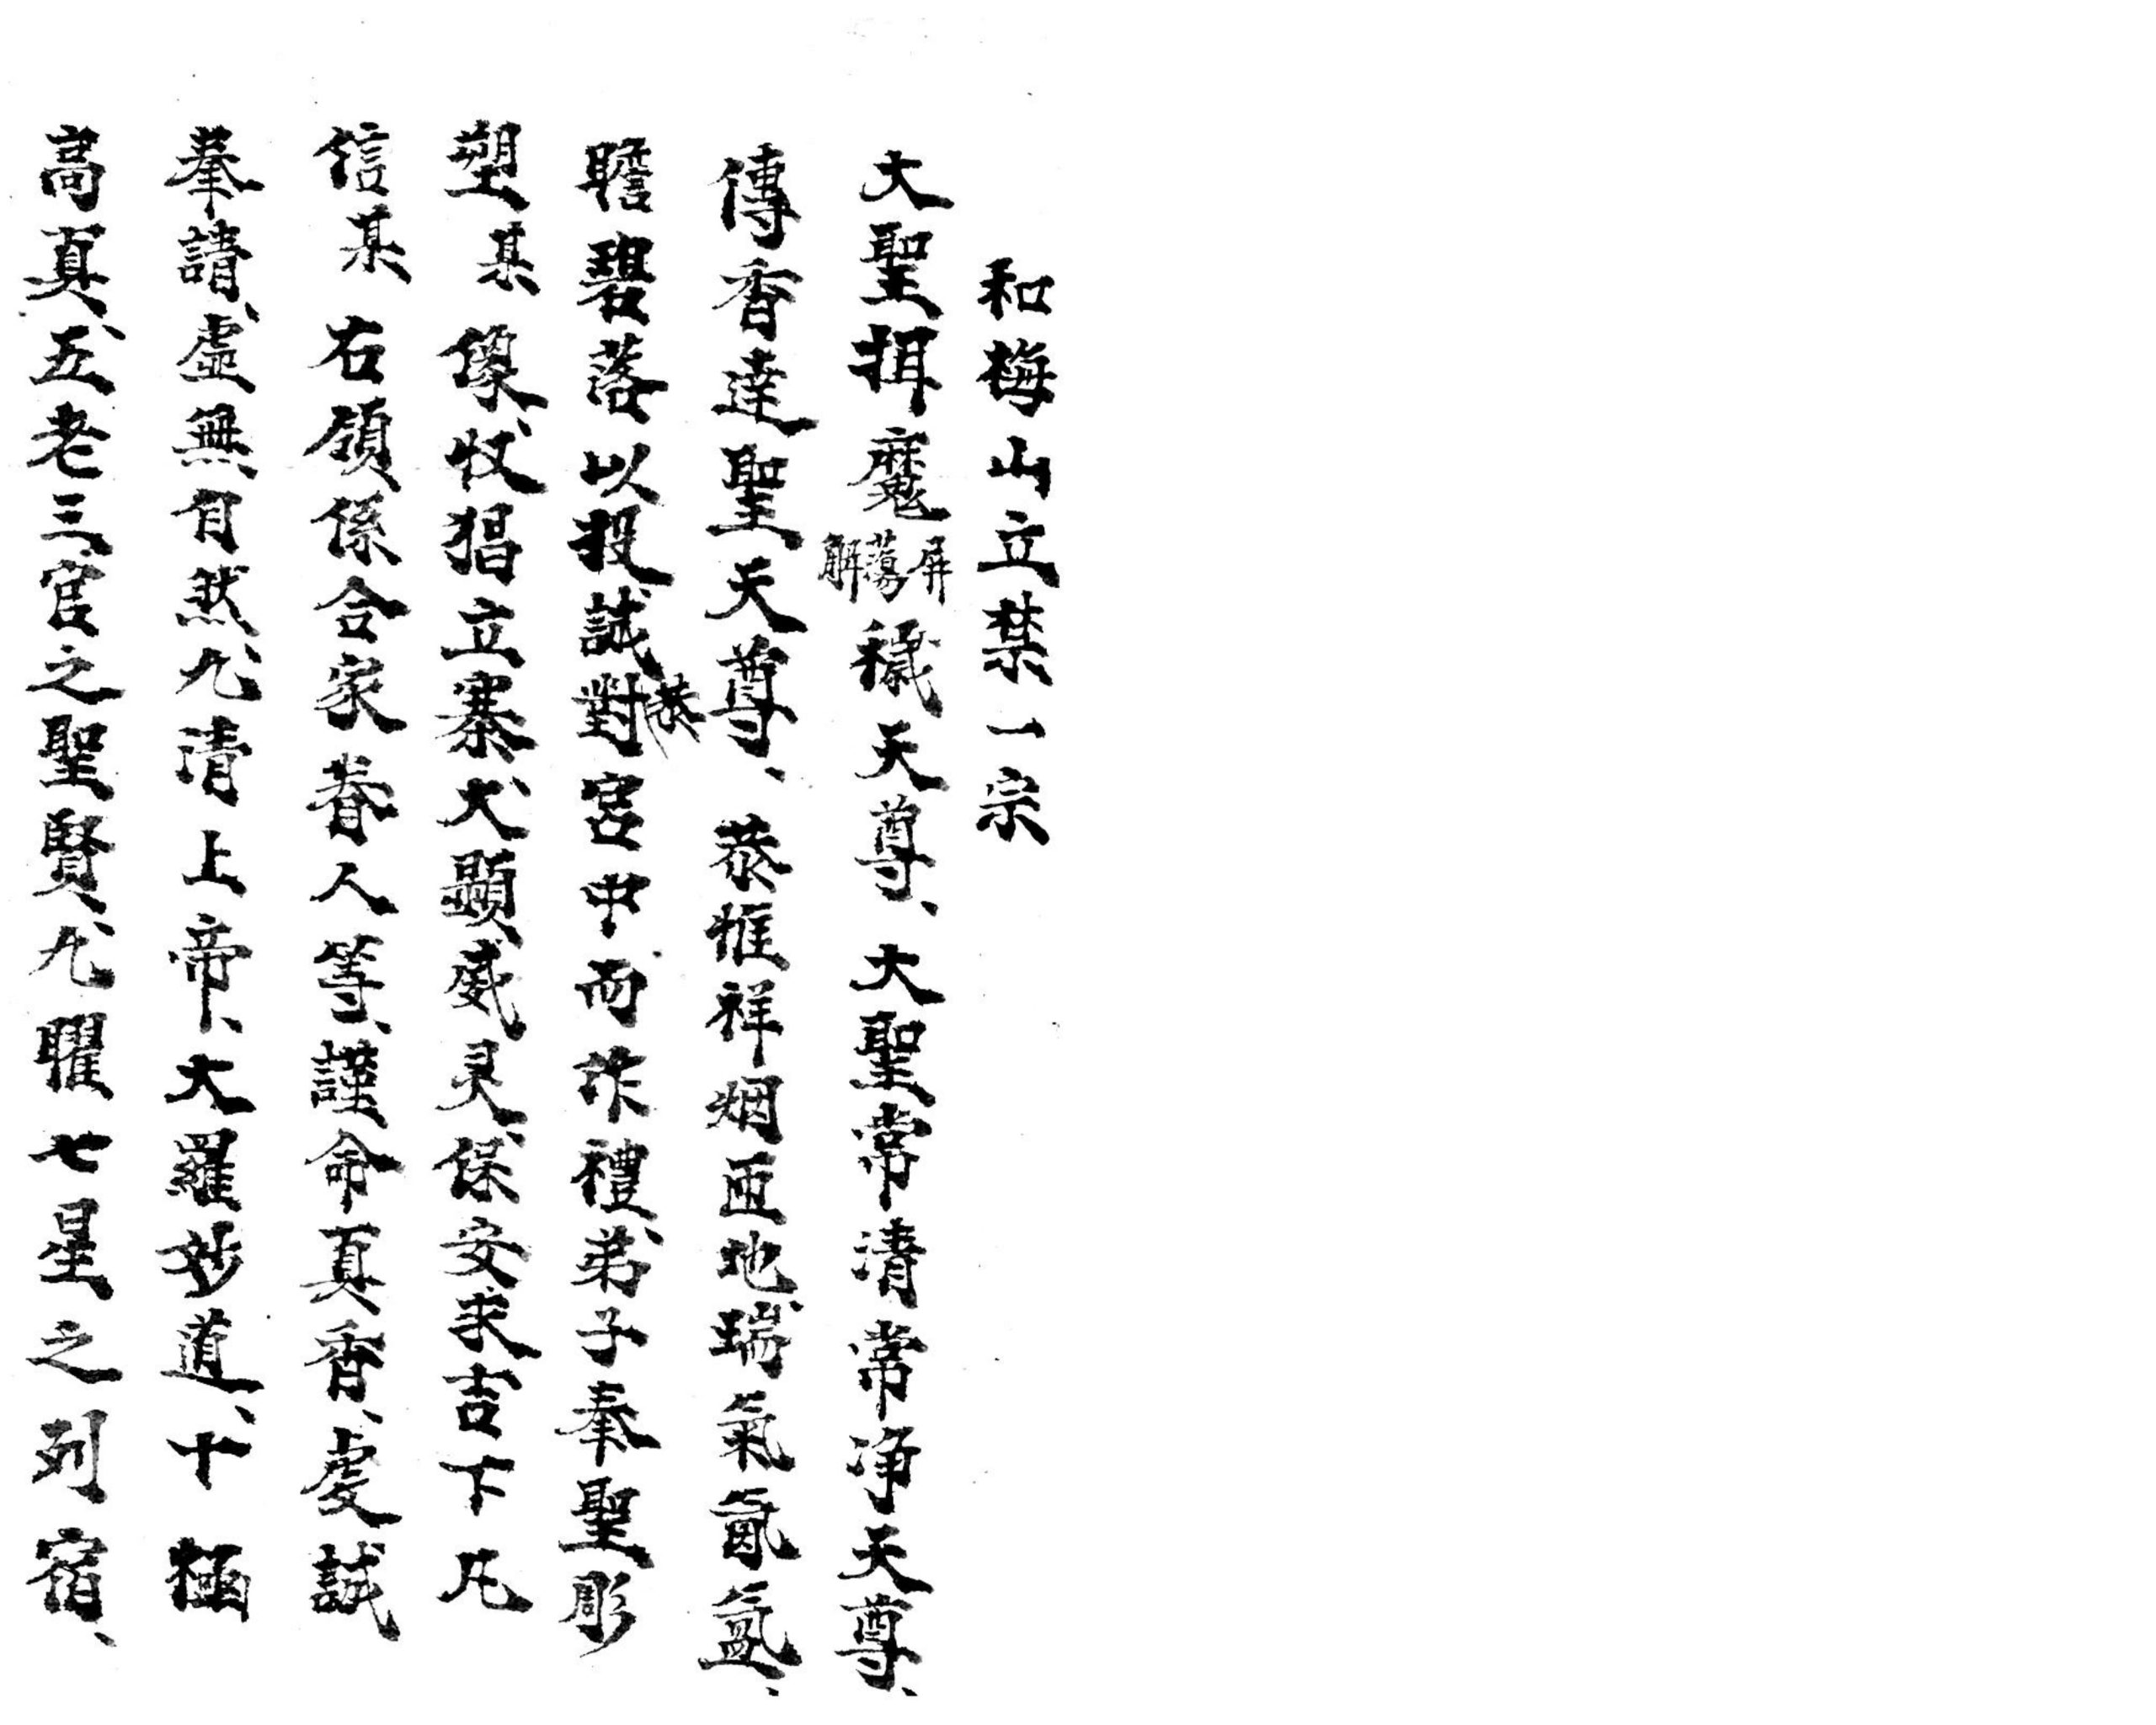 和梅山立禁一宗
大聖捐魔屏蕩解穢天尊、大聖常清常净天尊、
傳香達聖天尊、恭惟祥烟匝地、瑞氣氤氲、
瞻碧落以投誠、對恭宫中而作禮、弟子奉聖彫
塑某像、收猖立寨、大顯威灵、保安求吉、下凡
信某右領係合家眷人等、謹命真香、虔誠
奉請、虛無自然、九清上帝、大羅妙道、十極
高真、五老三官之聖賢、九曜七星之列宿、